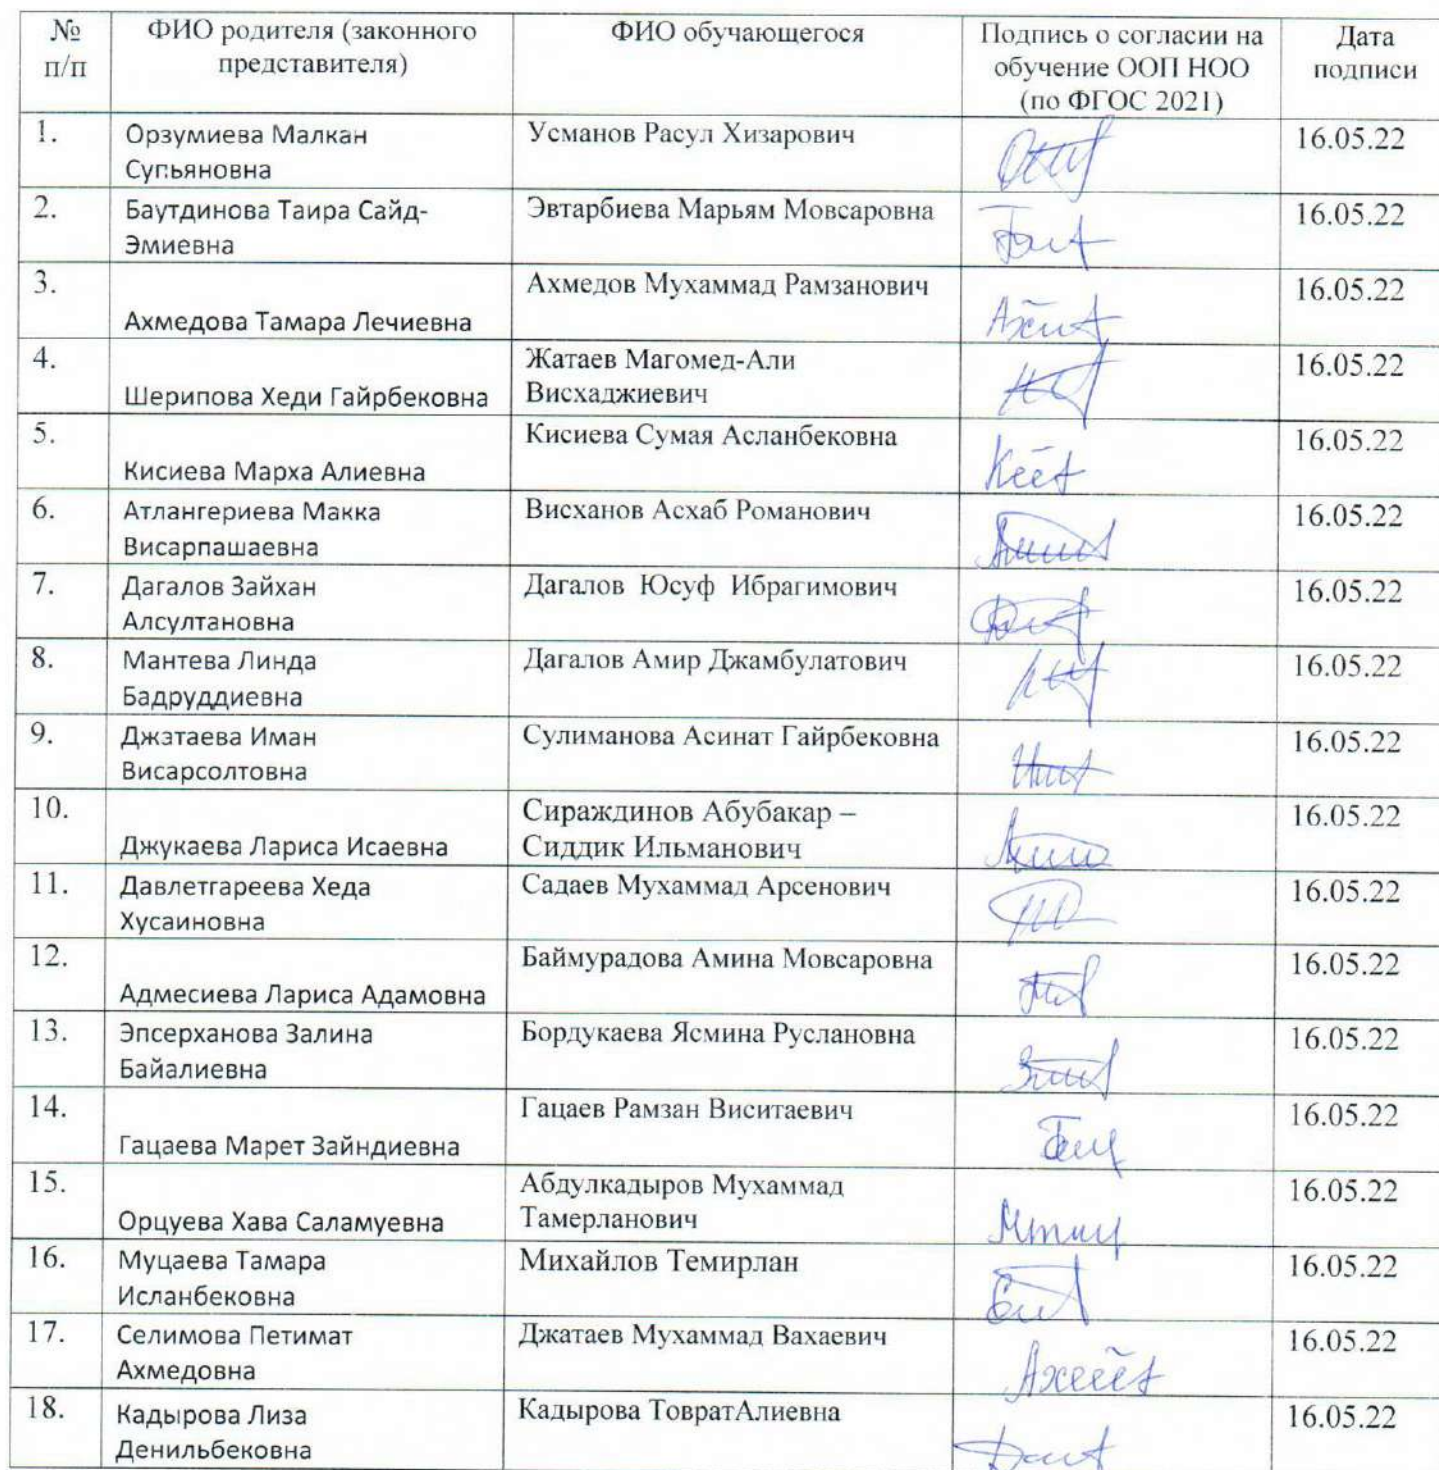 № п/п ФИО родителя (законного представителя) ФИО обучающегося Подпись о согласии на обучение ООП НОО (по ФГОС 2021) Дата подписи
1. Орзумиева Малкан Супьяновна Усманов Расул Хизарович 16.05.22
2. Баутдинова Таира Сайд-Эмиевна Эвтарбиева Марьям Мовсаровна 16.05.22
3. Ахмедова Тамара Лечиевна Ахмедов Мухаммад Рамзанович 16.05.22
4. Шерипова Хеди Гайрбековна Жатаев Магомед-Али Висхаджиевич 16.05.22
5. Кисиева Марха Алиевна Кисиева Сумая Асланбековна 16.05.22
6. Атлангериева Макка Висарпашаевна Висханов Асхаб Романович 16.05.22
7. Дагалов Зайхан Алсултановна Дагалов Юсуф Ибрагимович 16.05.22
8. Мантева Линда Бадруддиевна Дагалов Амир Джамбулатович 16.05.22
9. Джатаева Иман Висарсолтовна Сулиманова Асинат Гайрбековна 16.05.22
10. Джукаева Лариса Исаевна Сираждинов Абубакар – Сиддик Ильманович 16.05.22
11. Давлетгареева Хеда Хусаиновна Садаев Мухаммад Арсенович 16.05.22
12. Адмесиева Лариса Адамовна Баймурадова Амина Мовсаровна 16.05.22
13. Эпсерханова Залина Байалиевна Бордукаева Ясмина Руслановна 16.05.22
14. Гацаева Марет Зайндиевна Гацаев Рамзан Виситаевич 16.05.22
15. Орцуева Хава Саламуевна Абдулкадыров Мухаммад Тамерланович 16.05.22
16. Муцаева Тамара Исланбековна Михайлов Темирлан 16.05.22
17. Селимова Петимат Ахмедовна Джатаев Мухаммад Вахаевич 16.05.22
18. Кадырова Лиза Денильбековна Кадырова ТовратАлиевна 16.05.22